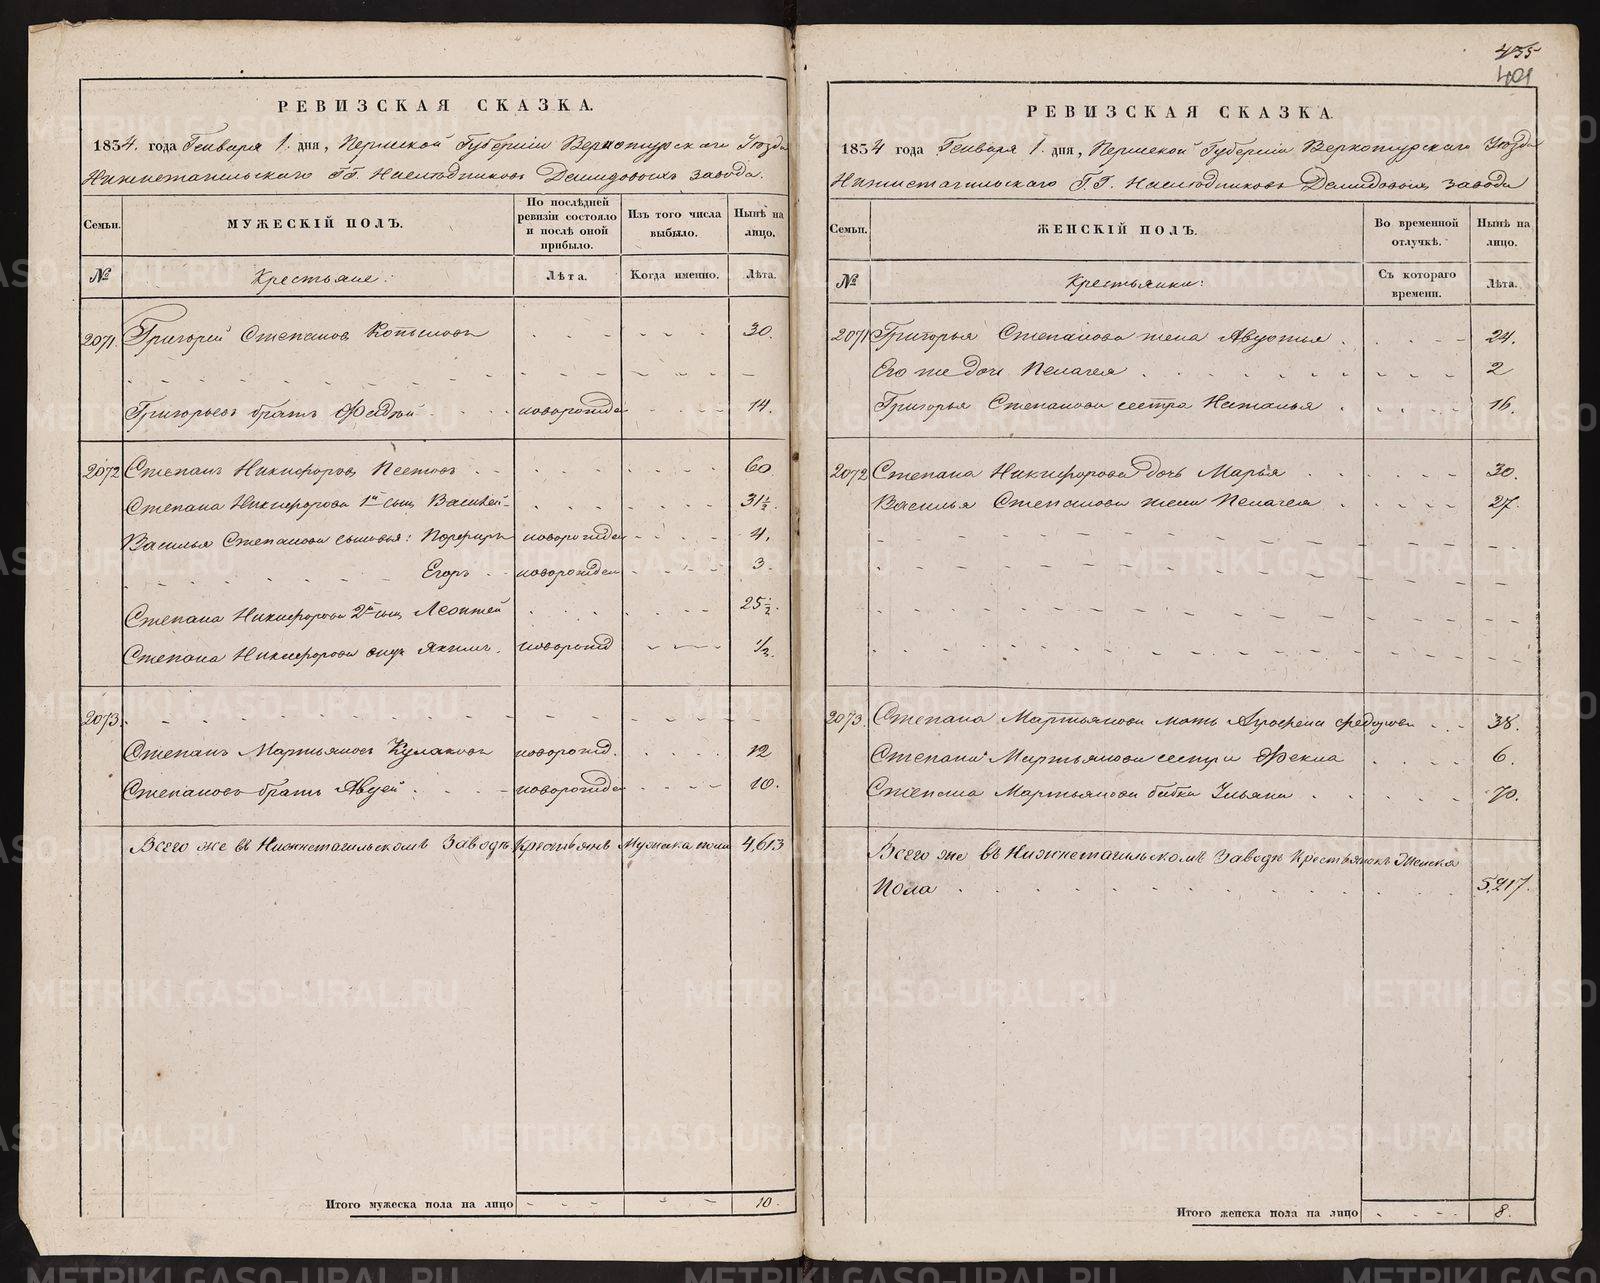 РЕВИЗСКАЯ СКАЗКА.
1834. года Генваря 1. дня, Пермской Губерніи Верхотурскаго Уѣзда
Нижнетагильскаго ГГ. Наслѣдниковъ Демидовыхъ завода.
Семьи.
МУЖЕСКІЙ ПОЛЪ.
По послѣдней ревизіи состояло и послѣ оной прибыло.
Изъ того числа выбыло.
Нынѣ на лицо.
№
Крестьяне:
Лѣта.
Когда именно.
Лѣта.
2071 Григорей Степановъ Копыловъ 30.
Григорьевъ братъ Федѣй новорожден 14.
2072 Степанъ Никифоровъ 60
Степана Никифорова 1й сынъ Василей 31½.
Василья Степанова сыновья: Порфиръ новорожден 4.
Егоръ новорожден 3.
Степана Никифорова 2й сынъ Леонтей 25½.
Степана Никифорова Якимъ. новорожд ½.
2073.
Степанъ Мартьяновъ Кулаковъ новорожд. 12
Степановъ братъ Авдей новорожден 10.
Всего же въ Нижнетагильскомъ Заводѣ Крестьянъ Мужеска пола 4,613
Итого мужеска пола на лицо 10.
435
401
РЕВИЗСКАЯ СКАЗКА.
1834 года Генваря 1. дня, Пермской Губерніи Верхотурскаго Уѣзда
Нижнетагильскаго Г.Г. Наслѣдниковъ Демидовыхъ завода
Семьи.
ЖЕНСКІЙ ПОЛЪ.
Во временной отлучкѣ.
Нынѣ на лицо.
№
Крестьянки:
Съ котораго времени.
Лѣта.
2071 Григорья Степанова жена Авдотья 24.
Его же дочь Пелагея 2
Григорья Степанова сестра Наталья 16.
2072 Степана Никифорова дочь Марья 30.
Василья Степанова жена Пелагея 27.
2073. Степана Мартьянова мать Агрофена Федорова 38.
Степана Мартьянова сестра Фекла 6.
Степана Мартьянова бабка Ульяна 70.
Всего же въ Нижнетагильскомъ Заводѣ Крестьянокъ Женска
Пола 5,217.
Итого женска пола на лицо 8.
METRIKI.GASO-URAL.RU